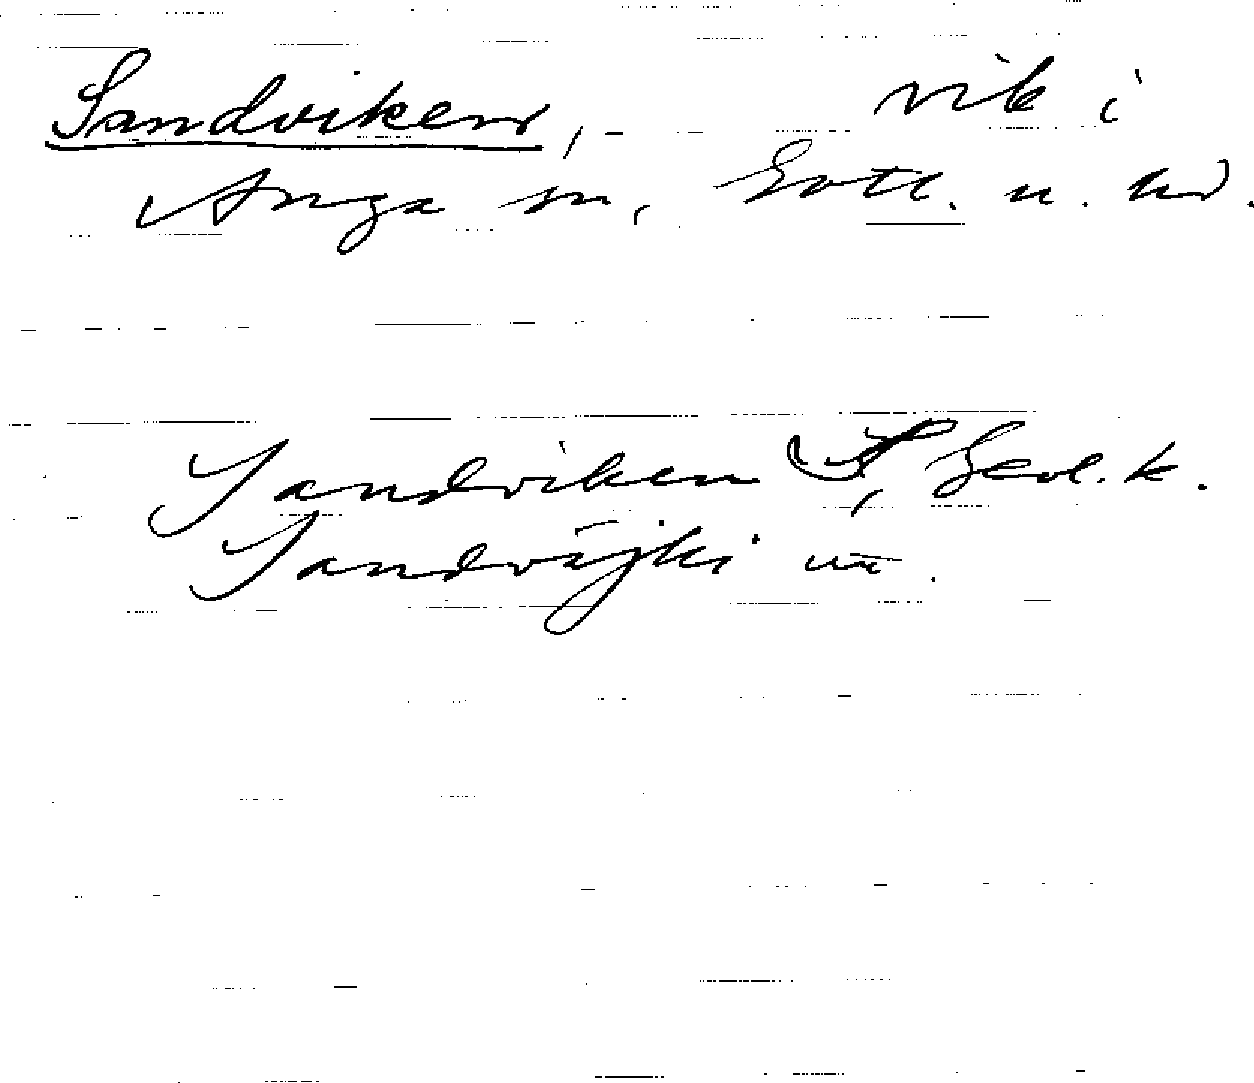 Sandviken, vik i
Anga sn, Gotl. n. hd.
Sandviken S, Geol. k.
Sandvӓjki